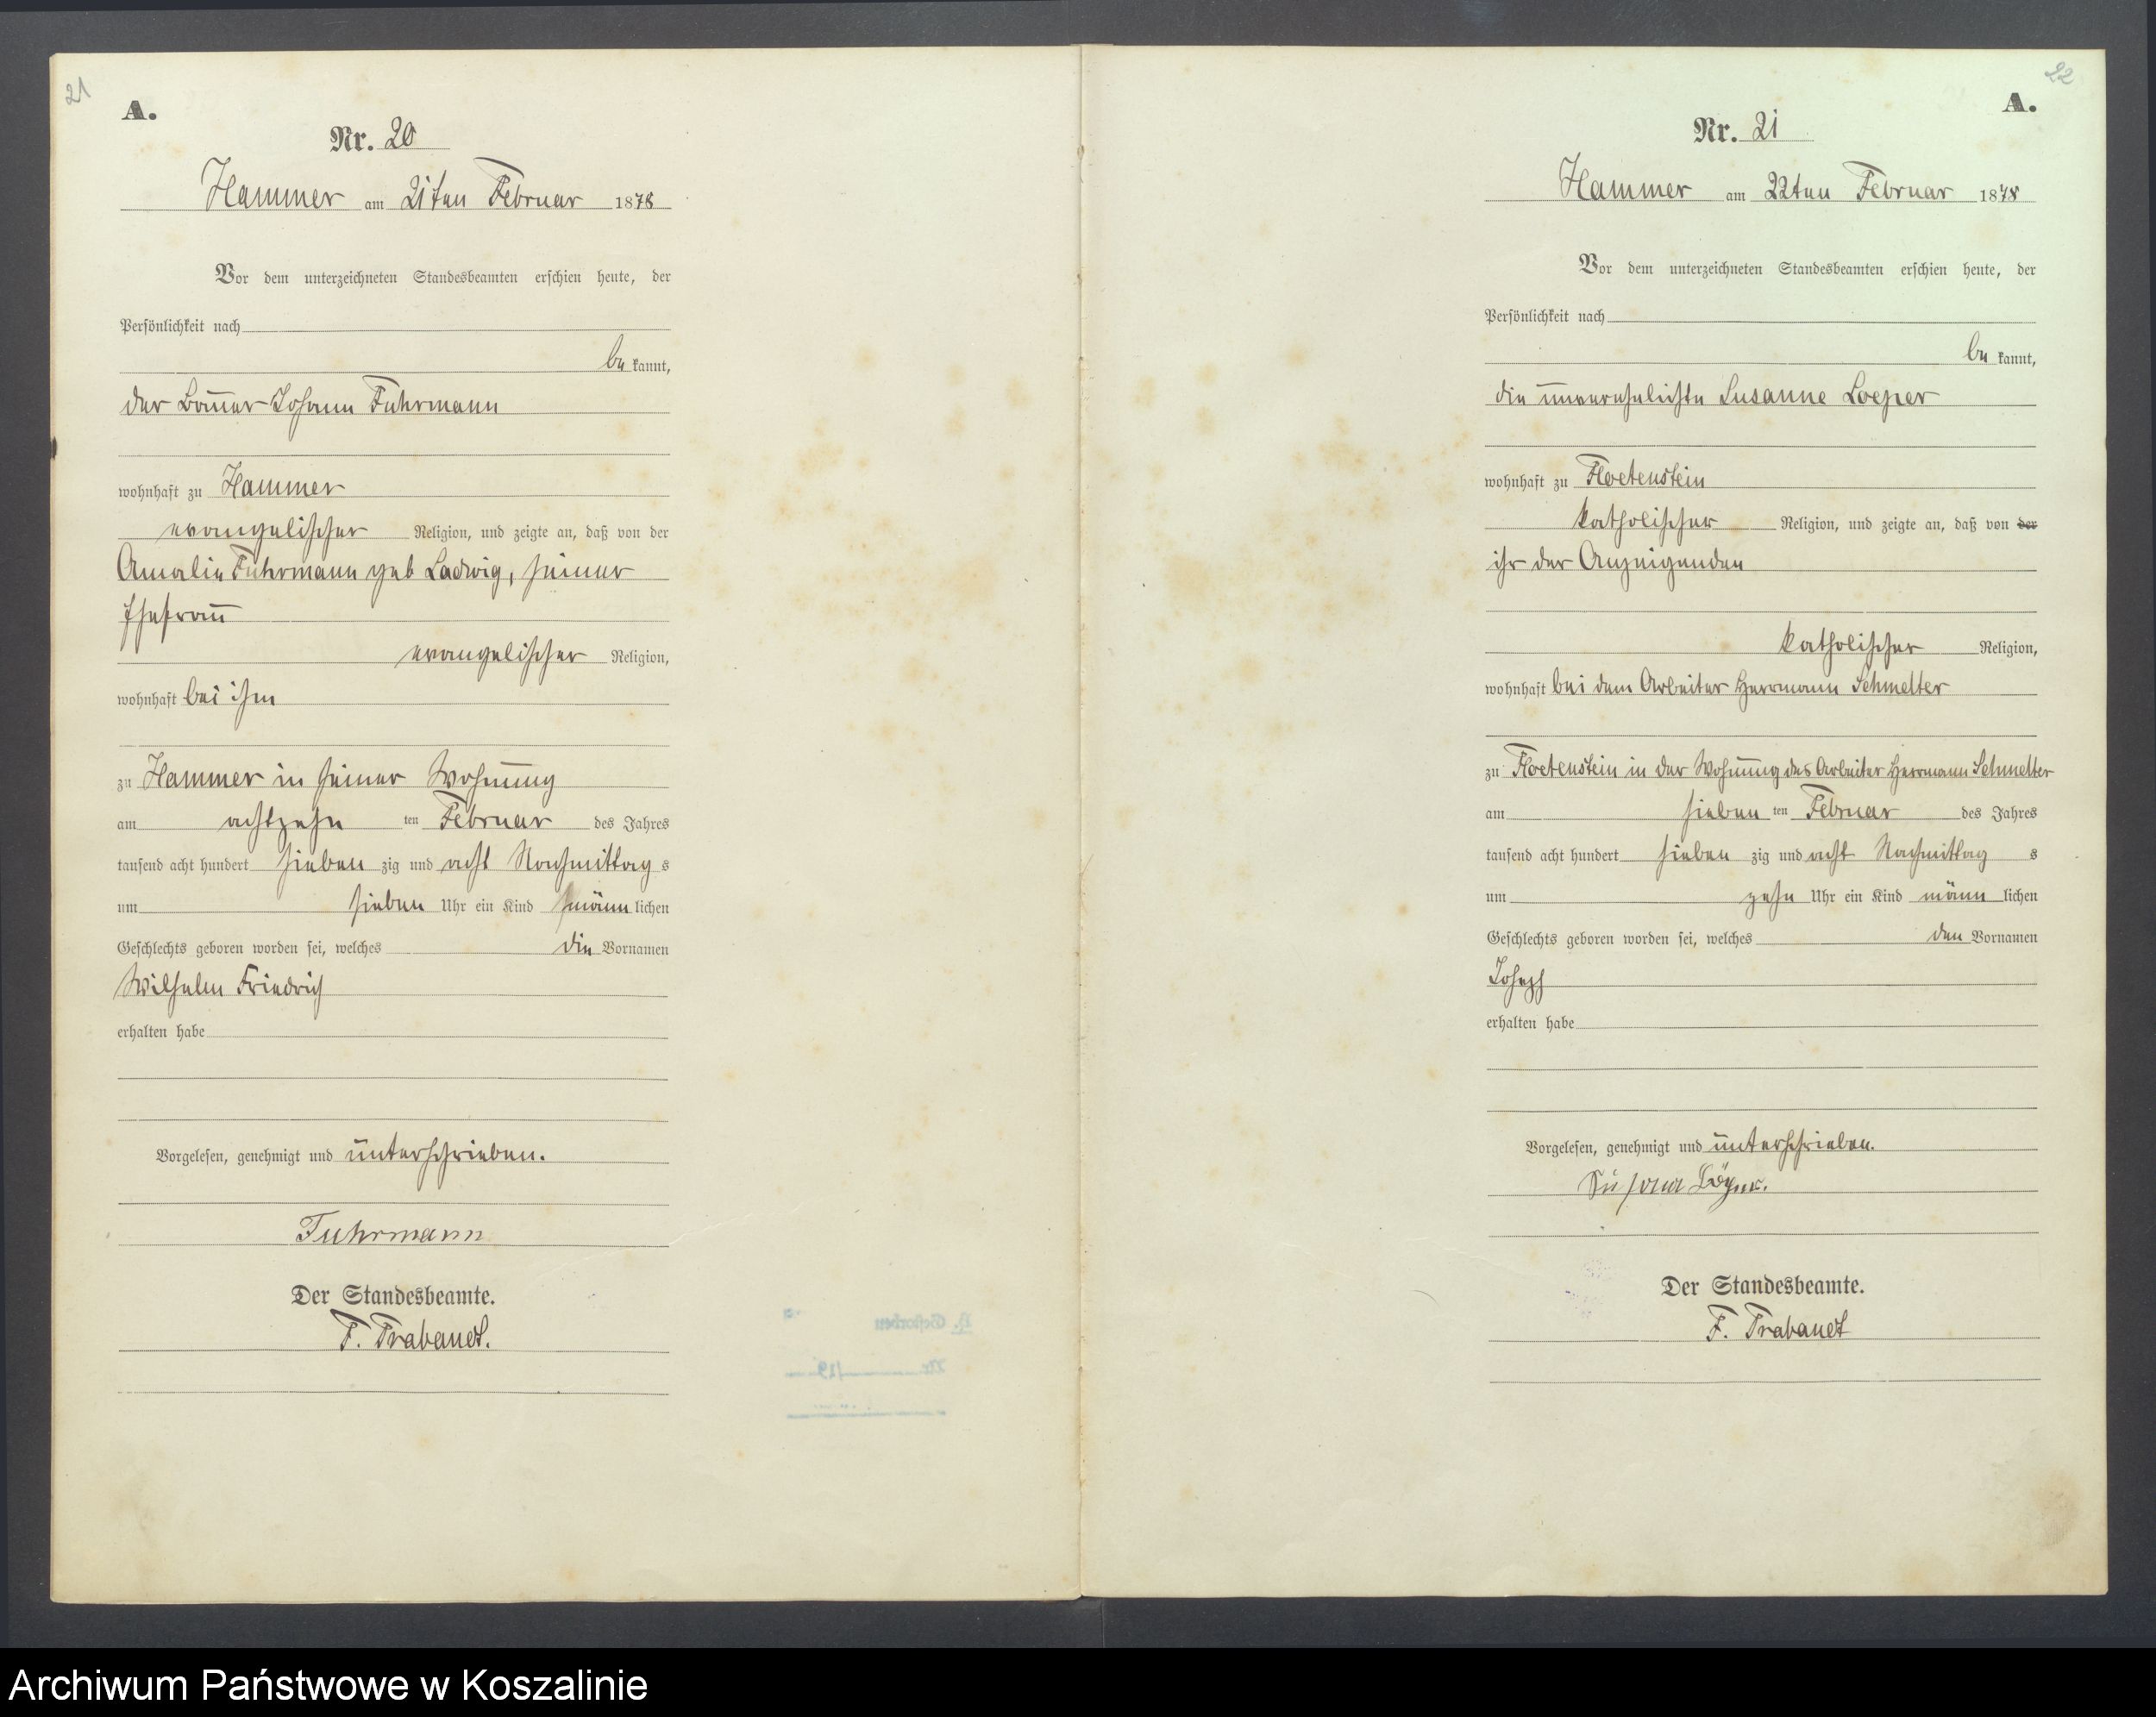 21
A.
Nr. 20
Hammer am 21ten Februar 1878
Vor dem unterzeichneten Standesbeamten erschien heute, der
Persönlichkeit nach
be kannt,
der Bauer Johann Fuhrmann
wohnhaft zu Hammer
evangelischer Religion, und zeigte an, daß von der
Amalie Fuhrmann geb Ladwig, seiner
Ehefrau
evangelischer Religion,
wohnhaft bei ihm
zu Hammer in seiner Wohnung
am achtzehn ten Februar des Jahres
tausend acht hundert sieben zig und acht Nachmittag s
um sieben Uhr ein Kind männ lichen
Geschlechts geboren worden sei, welches die Vornamen
Wilhelm Friedrich
erhalten habe
Vorgelesen, genehmigt und unterschrieben.
Fuhrmann
Der Standesbeamte.
F. Trabandt.
22
A.
Nr. 21
Hammer am 22ten Februar 1878
Vor dem unterzeichneten Standesbeamten erschien heute, der
Persönlichkeit nach
be kannt,
die unverehelichte Susanne Loeper
wohnhaft zu Floetenstein
katholischer Religion, und zeigte an, daß von der
ihr der Anzeigenden
katholischer Religion,
wohnhaft bei dem Arbeiter Herrmann Schmelter
zu Floetenstein in der Wohnung des Arbeiter Herrmann Schmelter
am sieben ten Februar des Jahres
tausend acht hundert sieben zig und acht Nachmittag s
um zehn Uhr ein Kind männ lichen
Geschlechts geboren worden sei, welches den Vornamen
Joseph
erhalten habe
Vorgelesen, genehmigt und unterschrieben.
Susana
Der Standesbeamte.
F. Trabandt
Archiwum Państwowe w Koszalinie